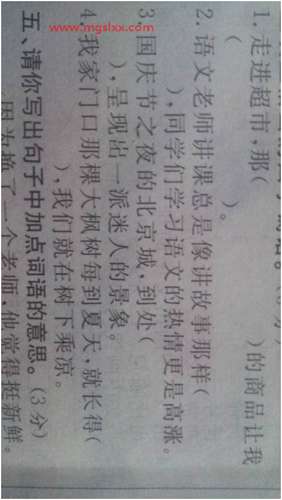 1. 走进超市,那(          )的商品让我
(          )。
2. 语文老师讲课总是像讲故事那样(
     ),同学们学习语文的热情更是高涨。
3 国庆节之夜的北京城,到处(
     ),呈现出一派迷人的景象。
4 我家门口那棵大枫树每到夏天,就长得(
     ),我们就在树下乘凉。
五、请你写出句子中加点词语的意思。(3分)
因为换了一个老师,他觉得挺新鲜。
www.mgslxx.com